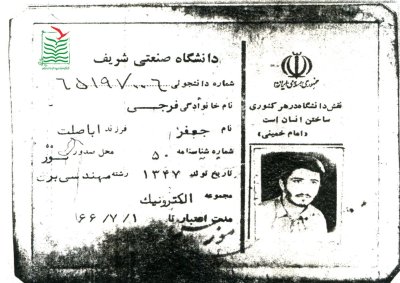 دانشگاه صنعتی شریف
شماره دانشجوئی ۶۵۱۹۷۰۰۶
نام خانوادگی فرجی
نام جعفر فرزند اباصلت
شماره شناسنامه ۵۰ محل صدور
تاریخ تولد ۱۳۴۷ رشته مهندسی برق
مجموعه الکترونیک
مدت اعتبار تا ۶۶/۷/۱
جمهوری اسلامی ایران
نقش دانشگاه در هر کشوری
ساختن انسان است
«امام خمینی»